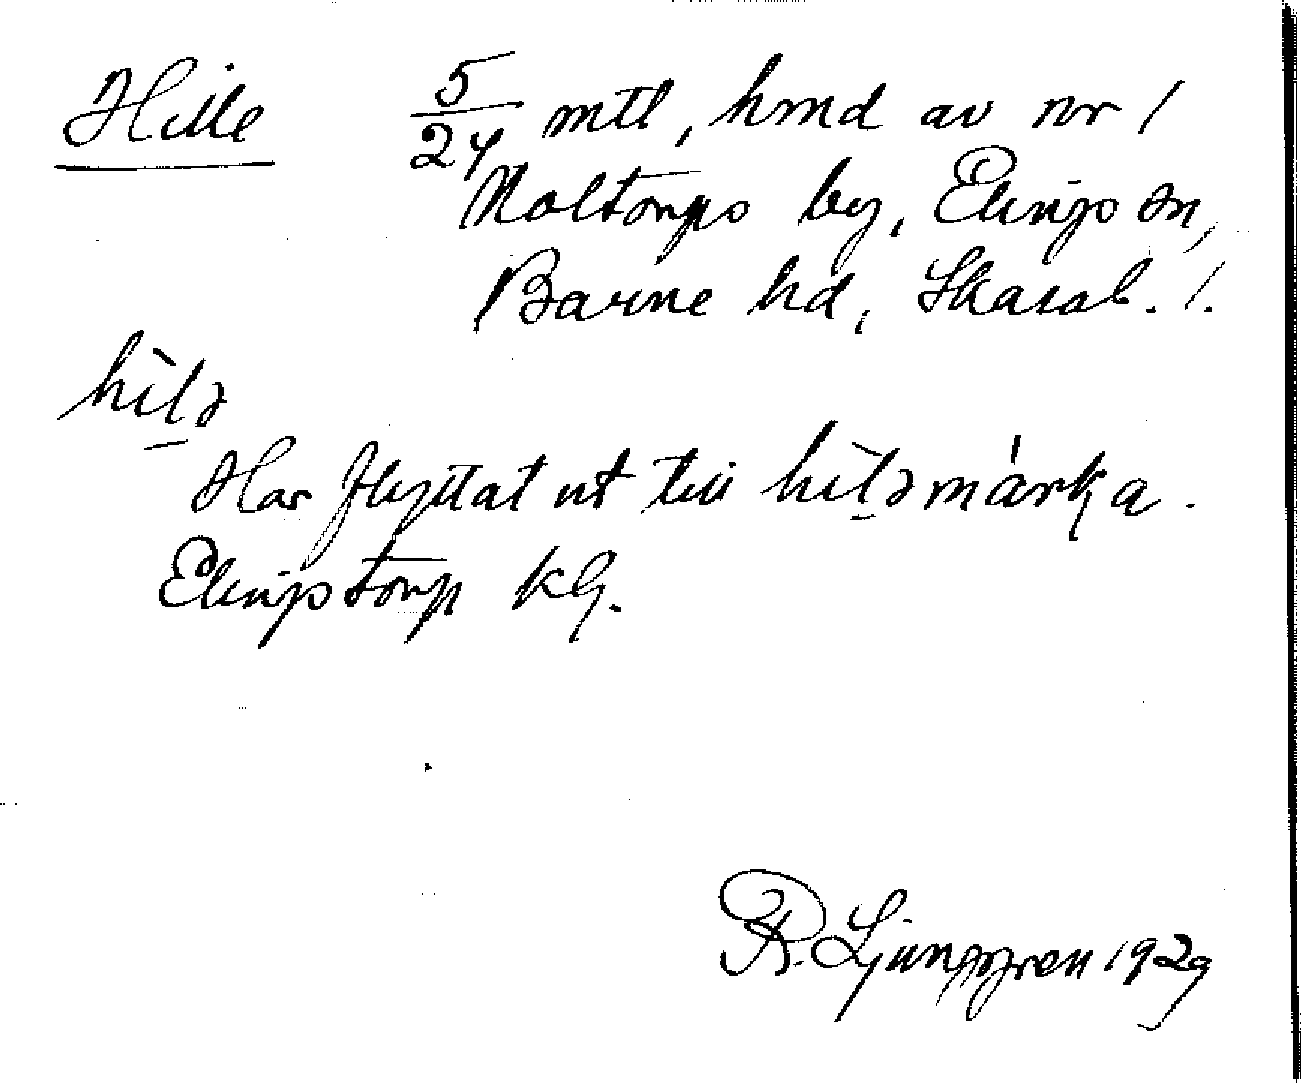 Hille 5/24 mtl, hmd av nr 1
Noltorps by, Elings sn,
Barne hd, Skarab. l.
hìl̠ə
Har flyttat ut till hìl̠əmárka.
Elingstorp kG.
R. Ljunggren 1929